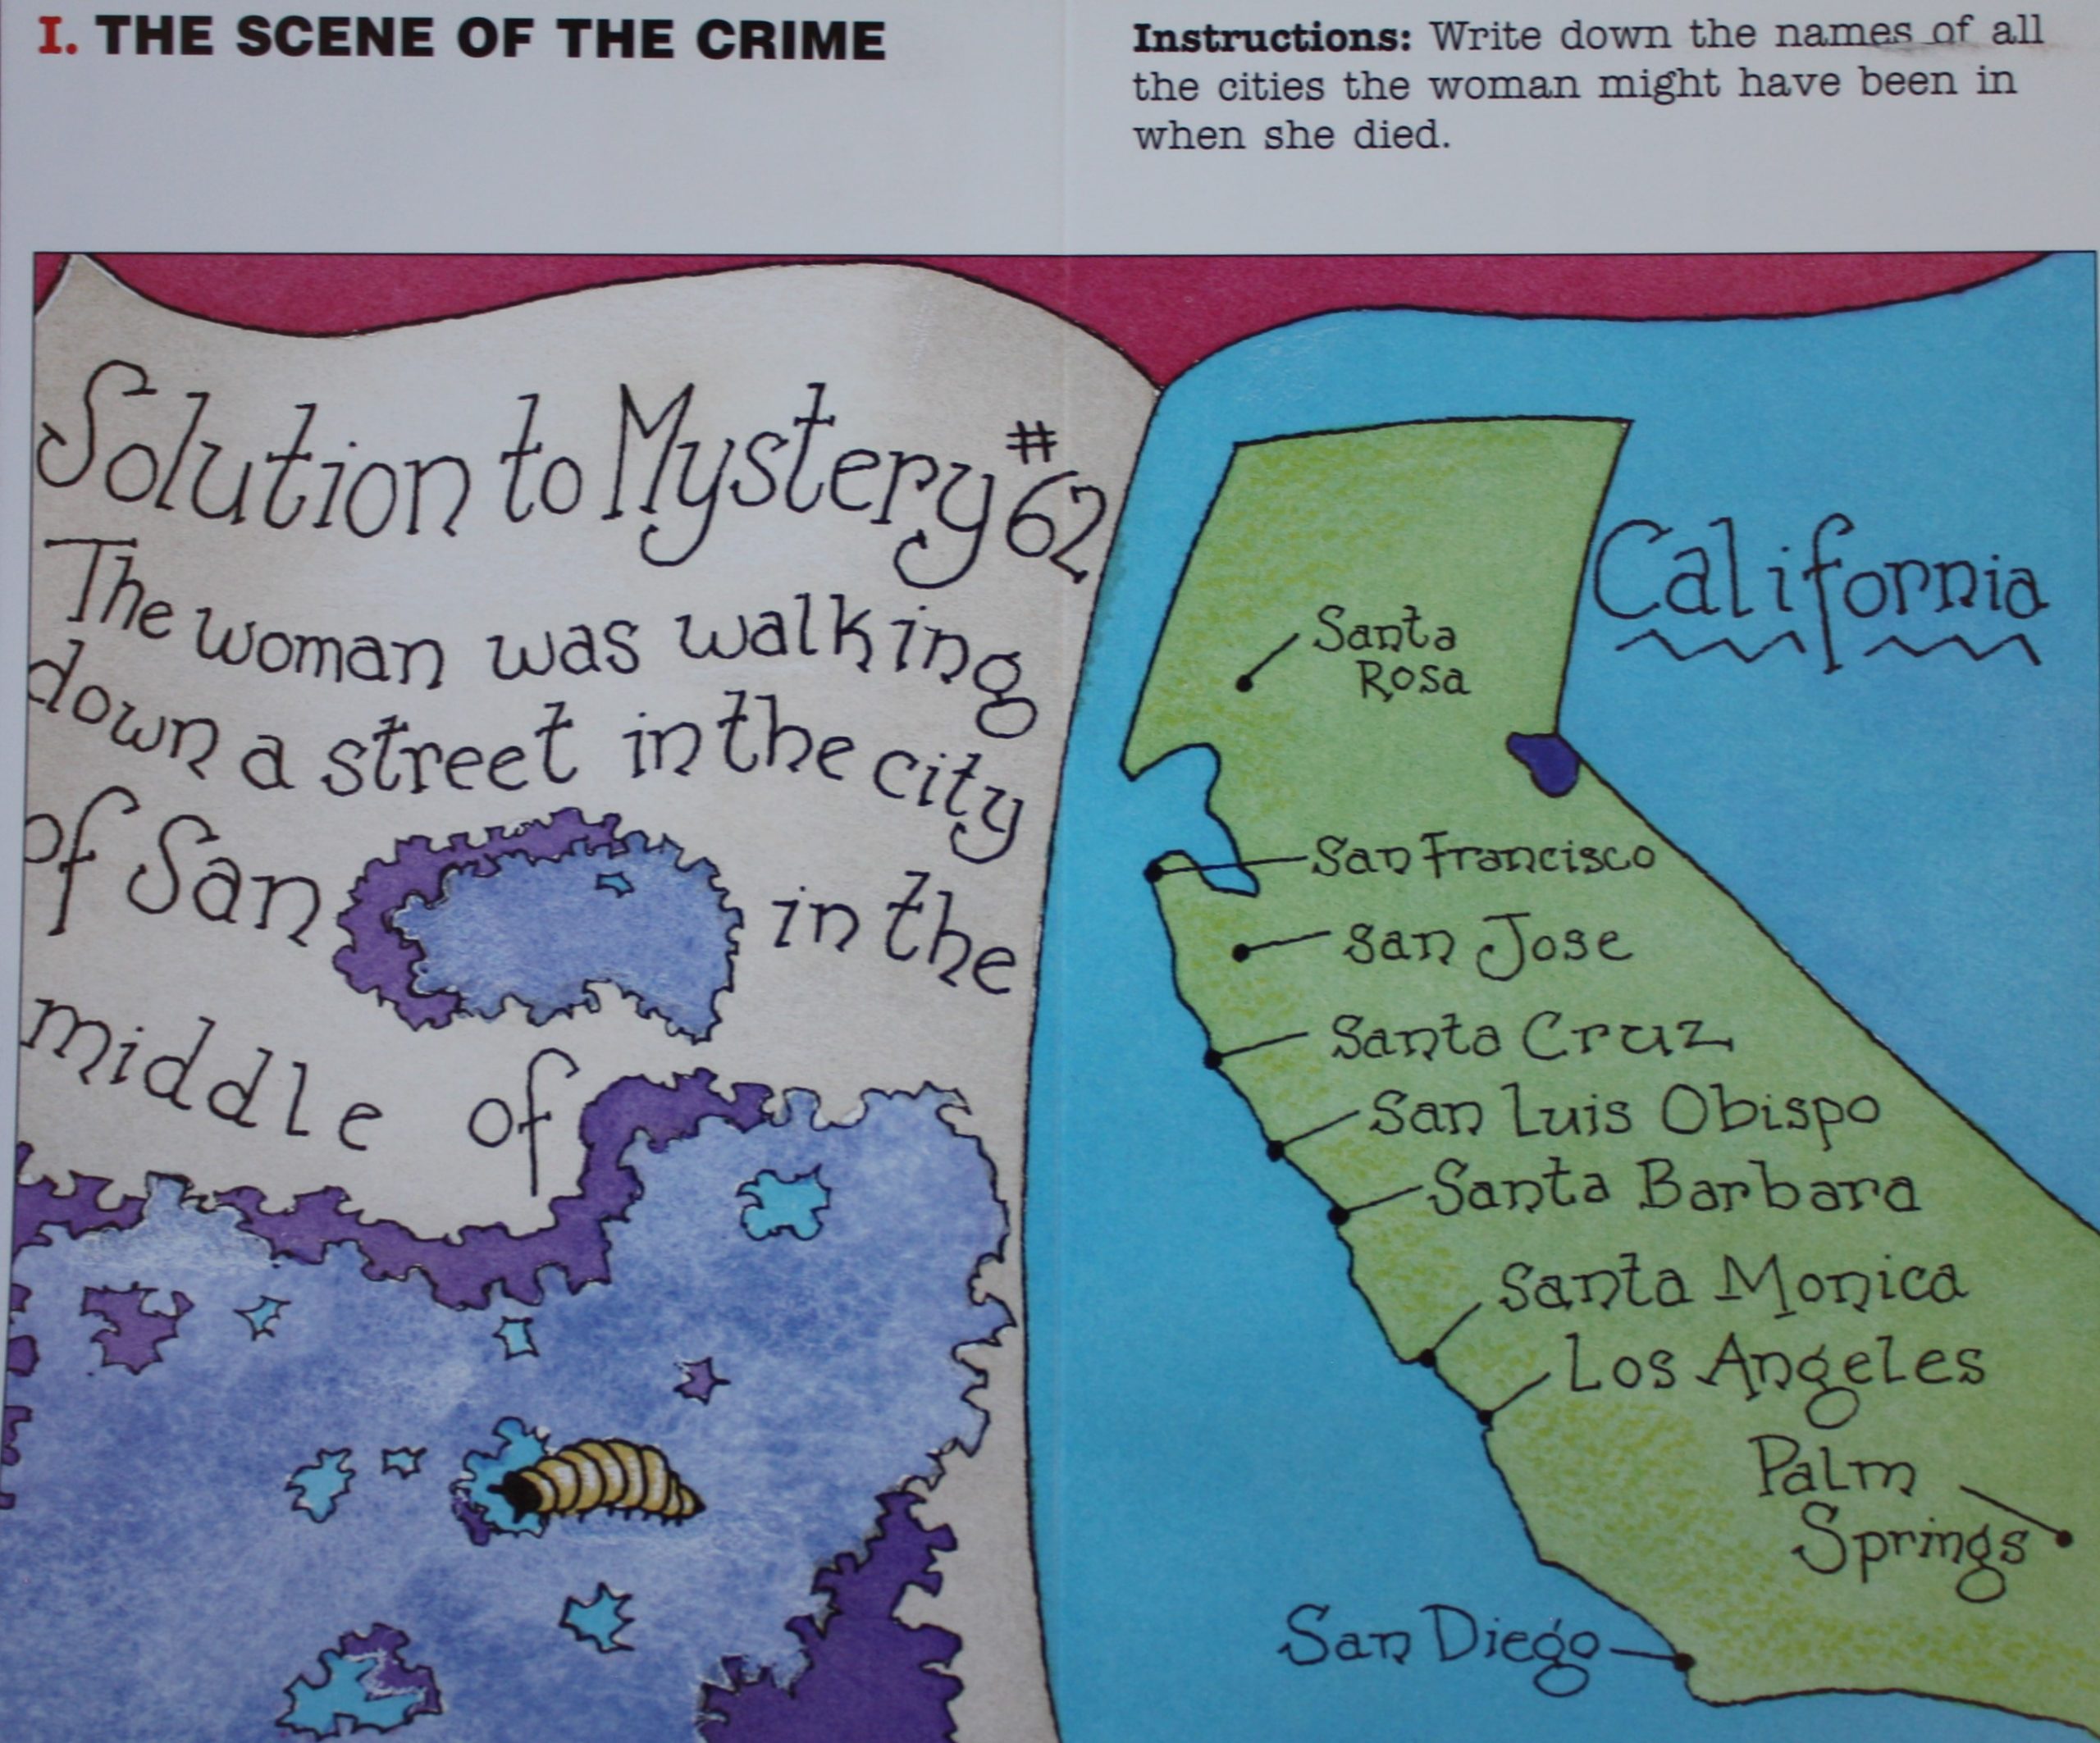 I. THE SCENE OF THE CRIME
Instructions: Write down the names of all
the cities the woman might have been in
when she died.
Solution to Mystery #62
The woman was walking
down a street in the city
of San in the
middle of
California
Santa
Rosa
San Francisco
San Jose
Santa Cruz
San Luis Obispo
Santa Barbara
Santa Monica
Los Angeles
Palm
Springs
San Diego